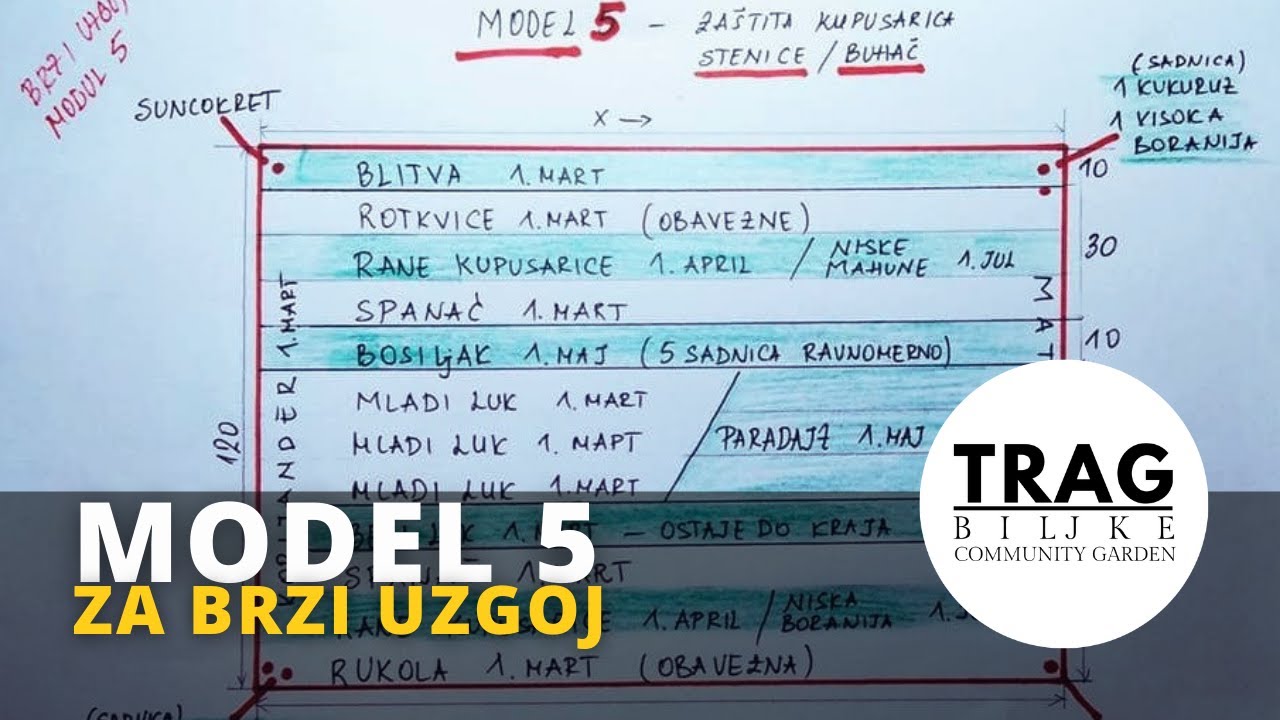 BRZI UZGOJ
MODUL 5
MODEL 5 - ZAŠTITA KUPUSARICA
STENICE / BUHAČ
SUNCOKRET
(SADNICA)
1 KUKURUZ
1 VISOKA
BORANIJA
X →
BLITVA 1. MART
10
ROTKVICE 1. MART (OBAVEZNE)
RANE KUPUSARICE 1. APRIL / NISKE MAHUNE 1. JUL
30
SPANAĆ 1. MART
BOSILJAK 1. MAJ (5 SADNICA RAVNOMERNO)
10
MLADI LUK 1. MART
MLADI LUK 1. МАРТ
PARADAJZ 1. MAJ
MLADI LUK 1. MART
LUK 1. MART - OSTAJE DO KRAJA
RANE KUPUSARICE 1. APRIL / NISKA BORANIJA
RUKOLA 1. MART (OBAVEZNA)
120
1. MART
MAT
(SADNICA)
MODEL 5
ZA BRZI UZGOJ
TRAG
BILJKE
COMMUNITY GARDEN